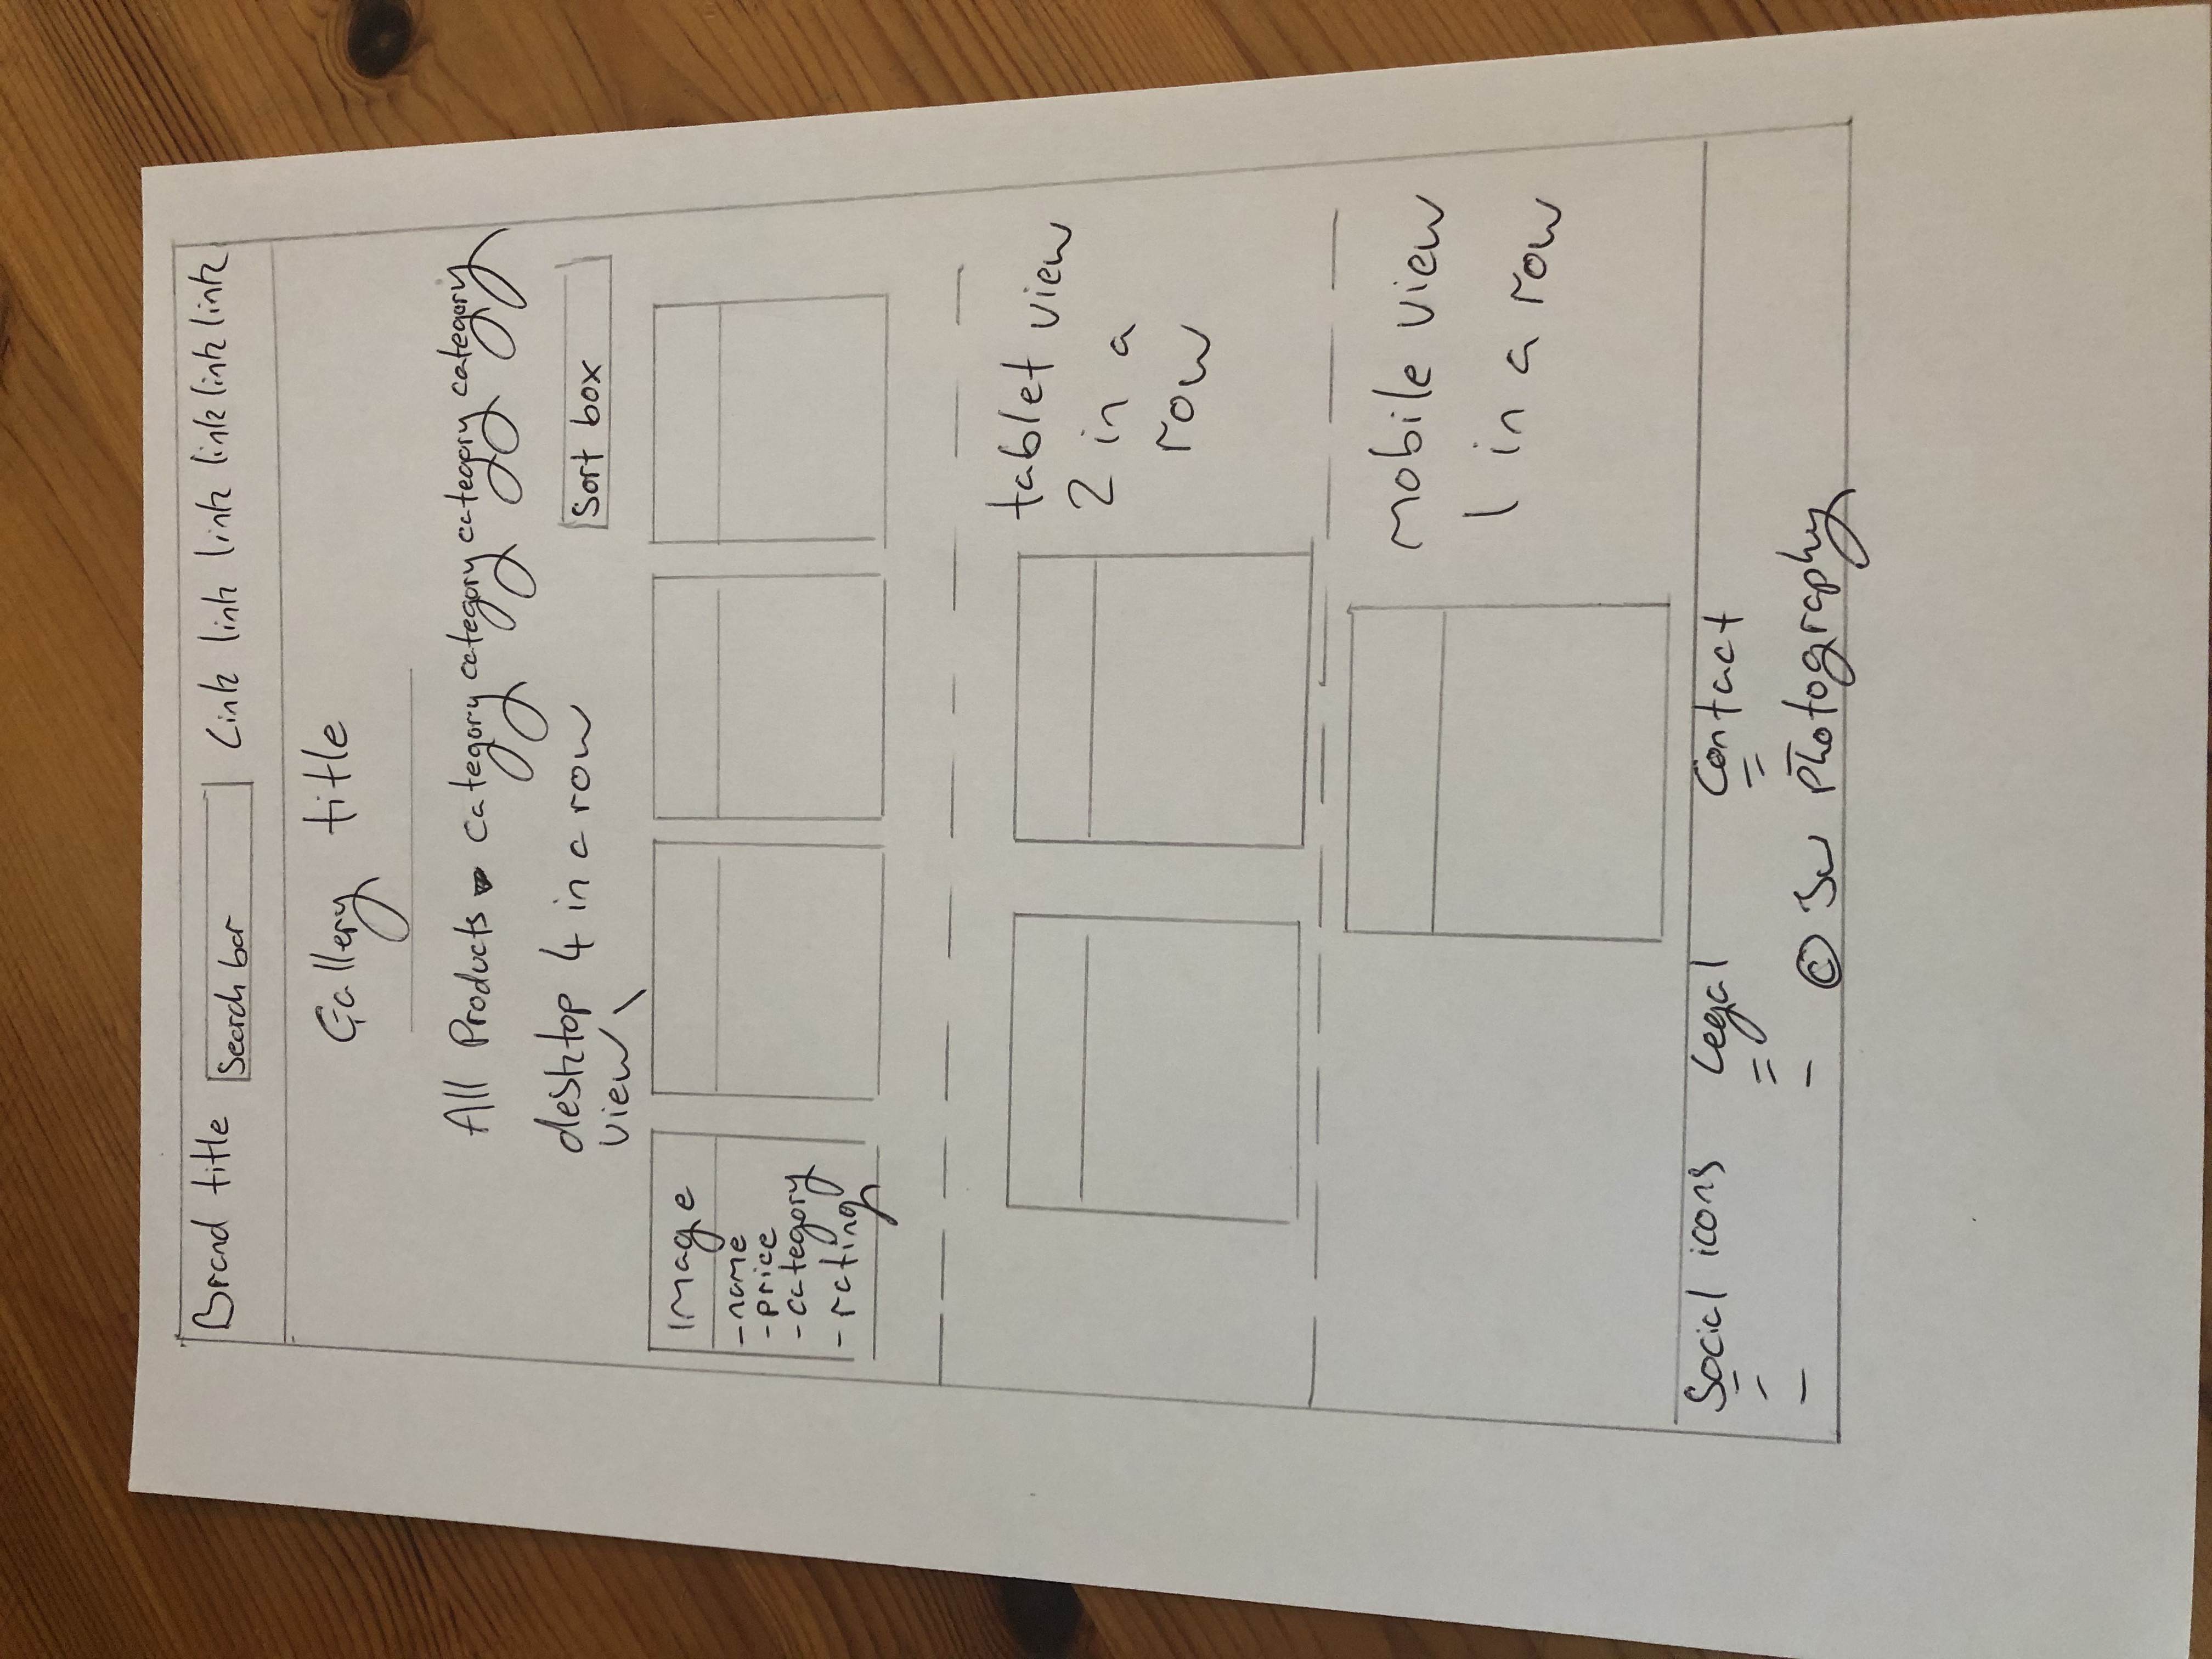 Brand title Search bar Link link link link link link
Gallery title
All Products category category category category
desktop 4 in a row
view
Sort box
Image
- name
- price
- category
- rating
tablet view
2 in a
row
mobile view
1 in a row
Social icons Legal Contact
© Photography